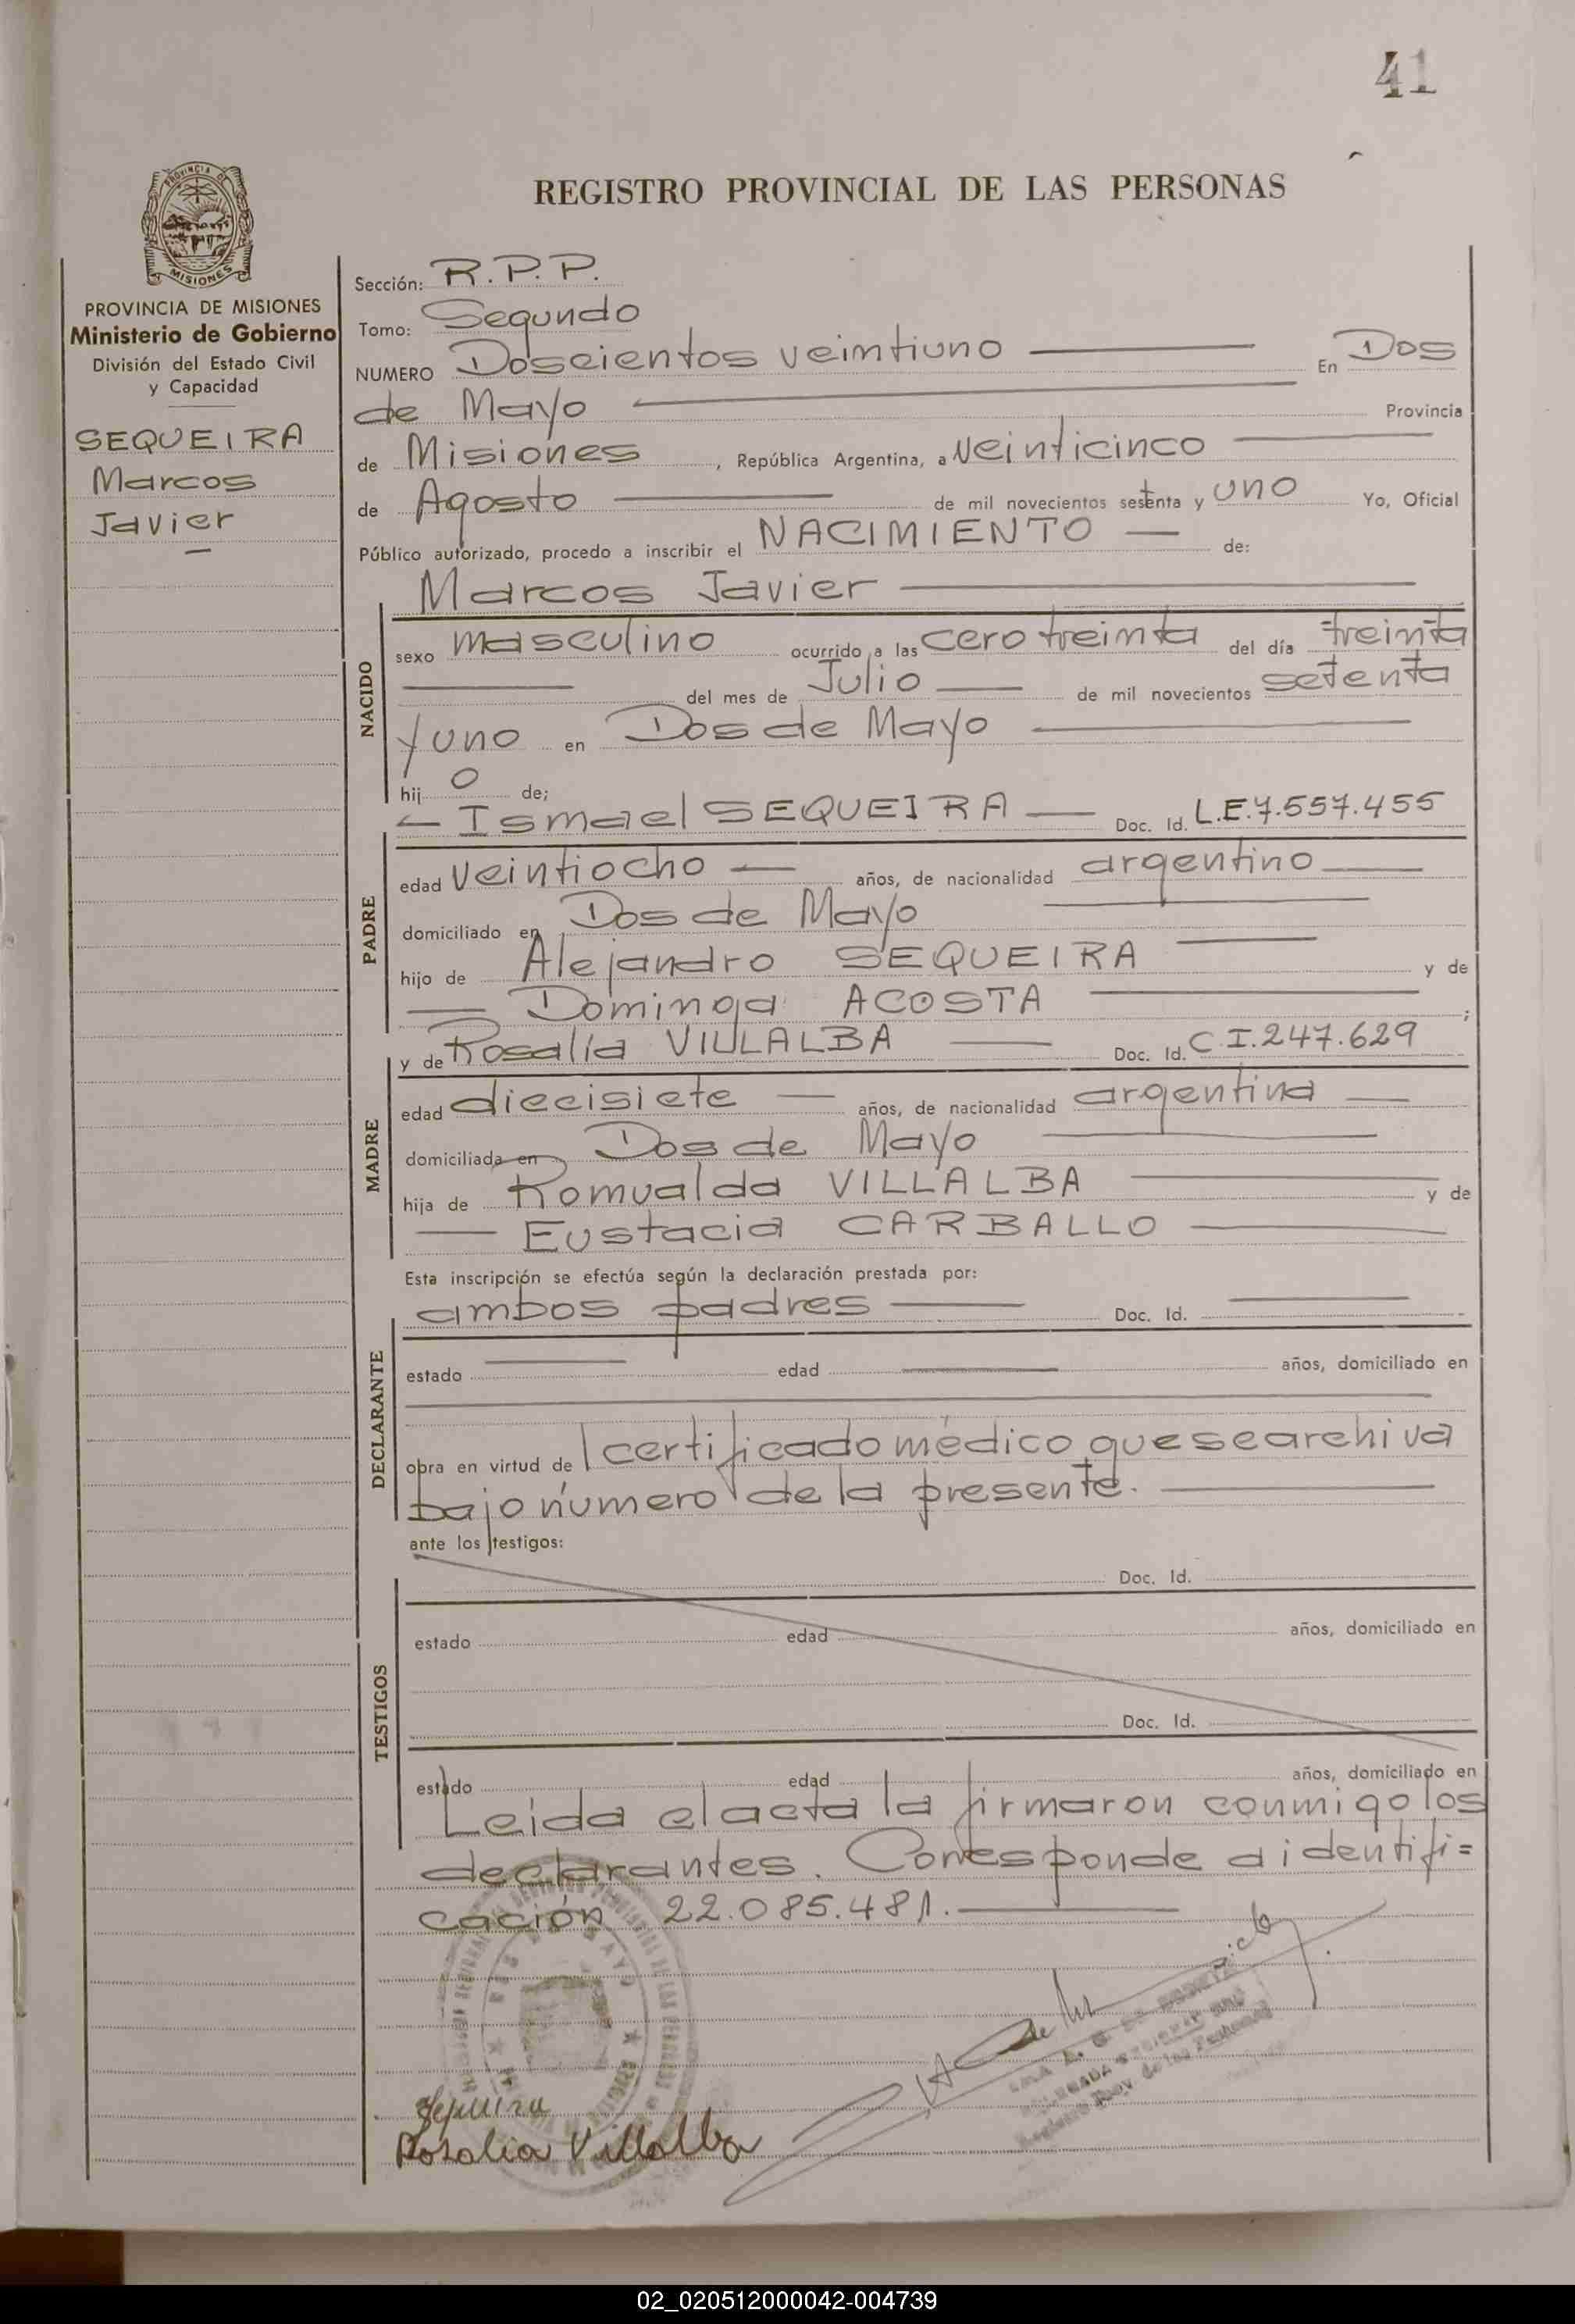 41
REGISTRO PROVINCIAL DE LAS PERSONAS
PROVINCIA DE
MISIONES
PROVINCIA DE MISIONES
Ministerio de Gobierno
División del Estado Civil
y Capacidad
SEQUEIRA
Marcos
Javier
Sección: R.P.P.
Tomo: Segundo
NUMERO Doscientos veintiuno En Dos
de Mayo Provincia
de Misiones, República Argentina, a veinticinco
de Agosto de mil novecientos setenta y uno Yo, Oficial
Público autorizado, procedo a inscribir el NACIMIENTO de:
Marcos Javier
NACIDO
sexo masculino ocurrido a las cero treinta del día treinta
del mes de Julio de mil novecientos setenta
y uno en Dos de Mayo
hijo de;
Ismael SEQUEIRA Doc. Id. L.E.7.557.455
PADRE
edad veintiocho años, de nacionalidad argentino
domiciliado en Dos de Mayo
hijo de Alejandro SEQUEIRA y de
Dominga ACOSTA ;
y de Rosalía VILLALBA Doc. Id. C.I.247.629
MADRE
edad diecisiete años, de nacionalidad argentina
domiciliada en Dos de Mayo
hija de Romualda VILLALBA y de
Eustacia CARBALLO
Esta inscripción se efectúa según la declaración prestada por:
ambos padres Doc. Id.
DECLARANTE
estado edad años, domiciliado en
obra en virtud del certificado médico que se archiva
bajo número de la presente.
ante los testigos:
Doc. Id.
TESTIGOS
estado edad años, domiciliado en
Doc. Id.
estado edad años, domiciliado en
Leída el acta la firmaron conmigo los
declarantes. Corresponde a identifi=
cación 22.085.481.
Sequeira
Rosalia Villalba
02_020512000042-004739